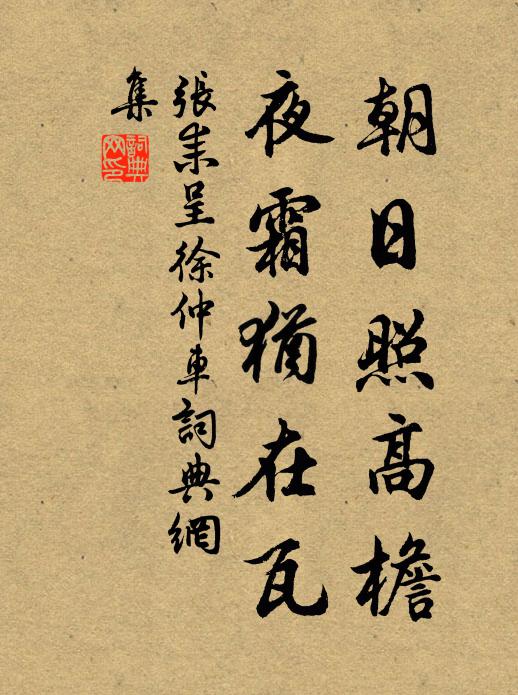 朝日照高檐
夜霜猶在瓦
張耒呈徐仲車詞典網
集
詞典
网印